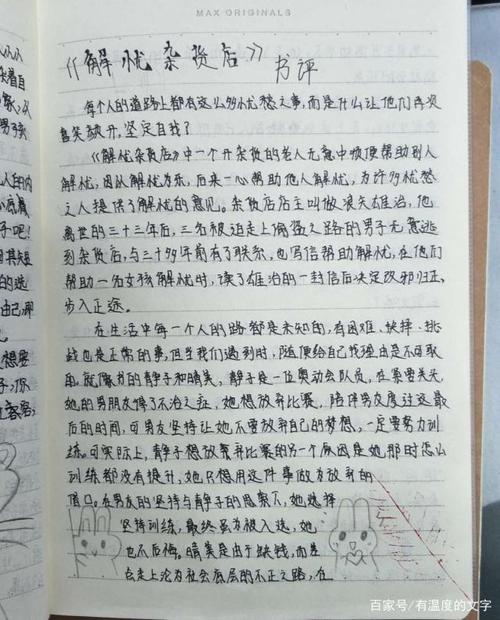 MAX ORIGINALS
《解忧杂货店》书评
每个人的道路上都有这么多忧愁之事,而是什么让他们再次
喜笑颜开,坚定自我?
《解忧杂货店》中一个开杂货的老人无意中顺便帮助别人
解忧,因从解忧为乐,后来一心帮助他人解忧,为许多忧愁
之人提供了解忧的意见。杂货店店主叫做浪矢雄治,他
离世的三十三年后,三名被迫走上偷盗之路的男子无意逃
到杂货店,与三十多年前有了联系,也写信帮助解忧,在他们
帮助一名女孩解忧时,读了雄治的一封信后决定改邪归正,
步入正途。
在生活中每一个人的路都是未知的,有困难、抉择、挑
战也是正常的事,但当我们遇到时,随便给自己找理由是不可取
的。就像书的静子和晴美,静子是一位奥动会队员,在紧要关头,
她的男朋友得了不治之症,她想放弃比赛,陪伴男友度过这最
后的时间,可男友坚持让她不要放弃自己的梦想,一定要努力训
练。可实际上,静子想放弃比赛的另一个原因是她那时怎么
训练都没有提升,她只想用这件事做为放弃的
借口。在男友的坚持与静子的思索下,她选择
坚持训练,最终虽为被入选,她
也不后悔。晴美是由于缺钱,而差
点走上沦为社会底层的不正之路,在
百家号/有温度的文字